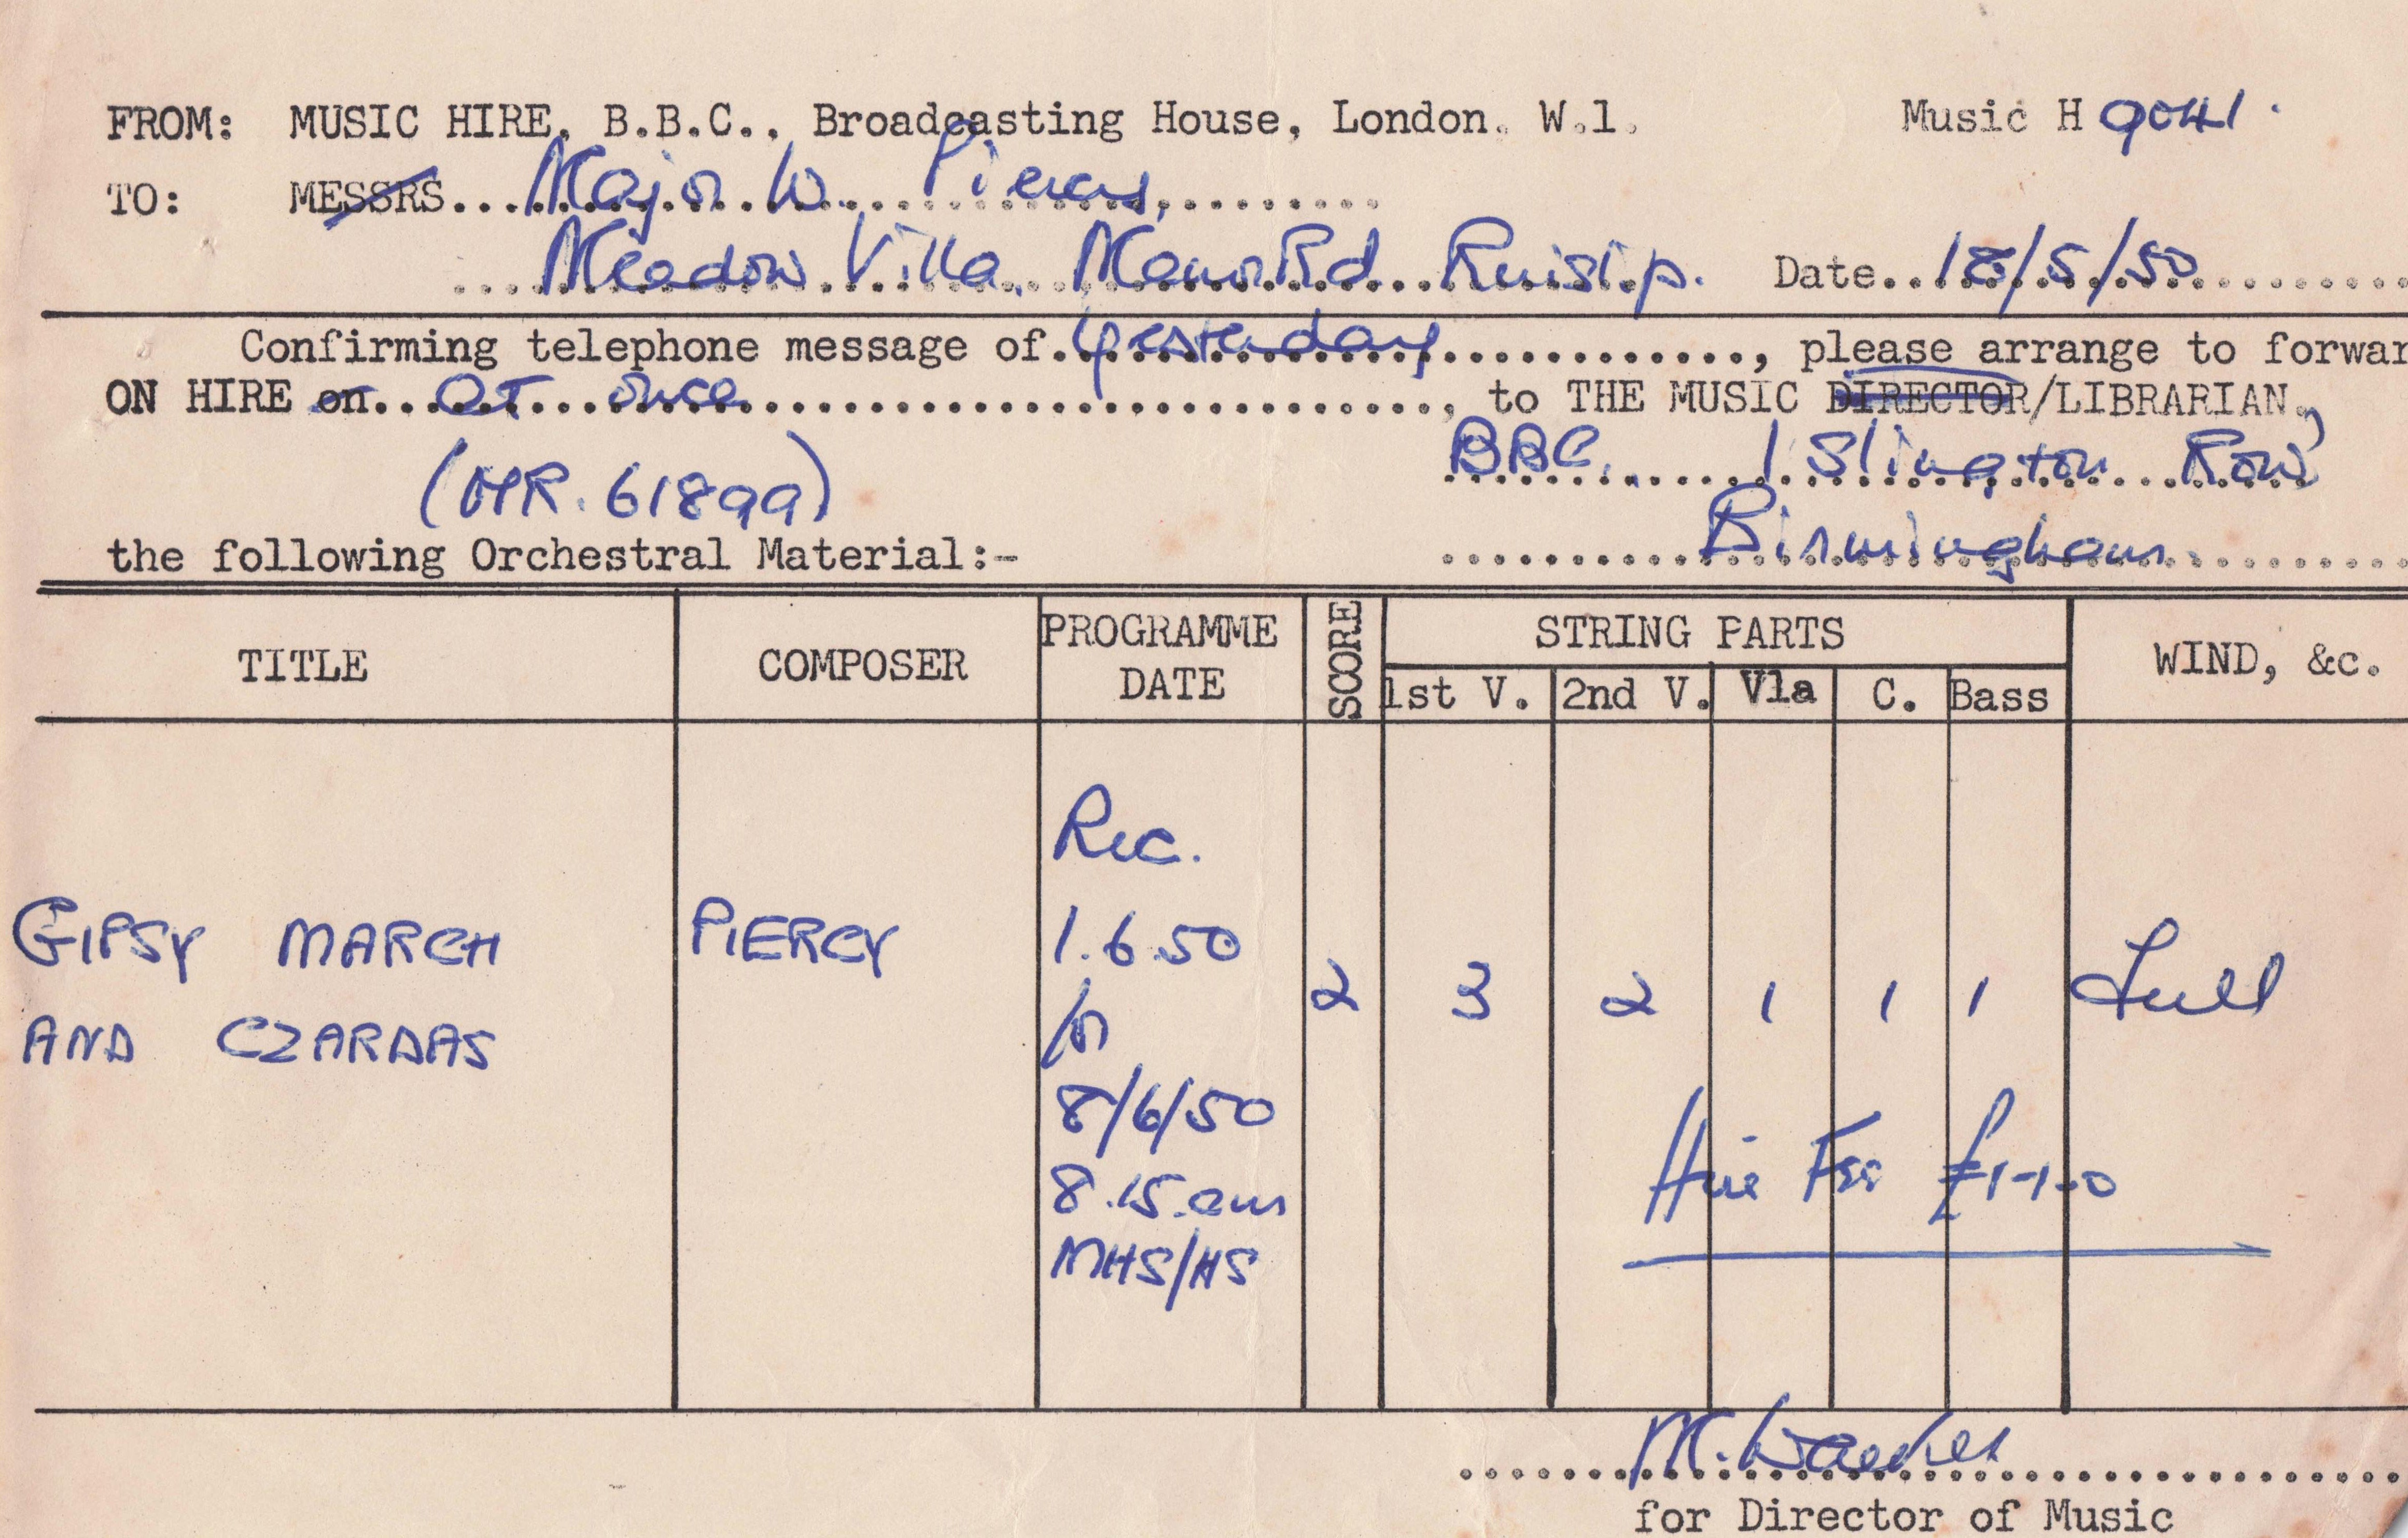 FROM: MUSIC HIRE, B.B.C., Broadcasting House, London. W.1. Music H 9041.
TO: MESSRS... Major W. Piercy,
Meadow Villa, Manor Rd. Ruislip. Date..18/5/50
Confirming telephone message of yesterday, please arrange to forwar
ON HIRE on... at once, to THE MUSIC DIRECTOR/LIBRARIAN,
BBC, Islington Row,
(MR. 61899)
Birmingham
the following Orchestral Material:-
TITLE COMPOSER PROGRAMME DATE SCORE STRING PARTS WIND, &c.
1st V. 2nd V. Vla C. Bass
Rec.
GIPSY MARCH PIERCY 1.6.50
2 3 2 1 1 1 Full
AND CZARDAS
8/6/50
Hire Fee £1-1-0
8.15.am
MHS/HS
for Director of Music